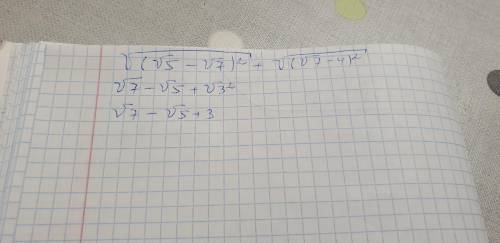 √(√5 − √7)² + √(√7 − 4)²
√7 − √5 + √3²
√7 − √5 + 3